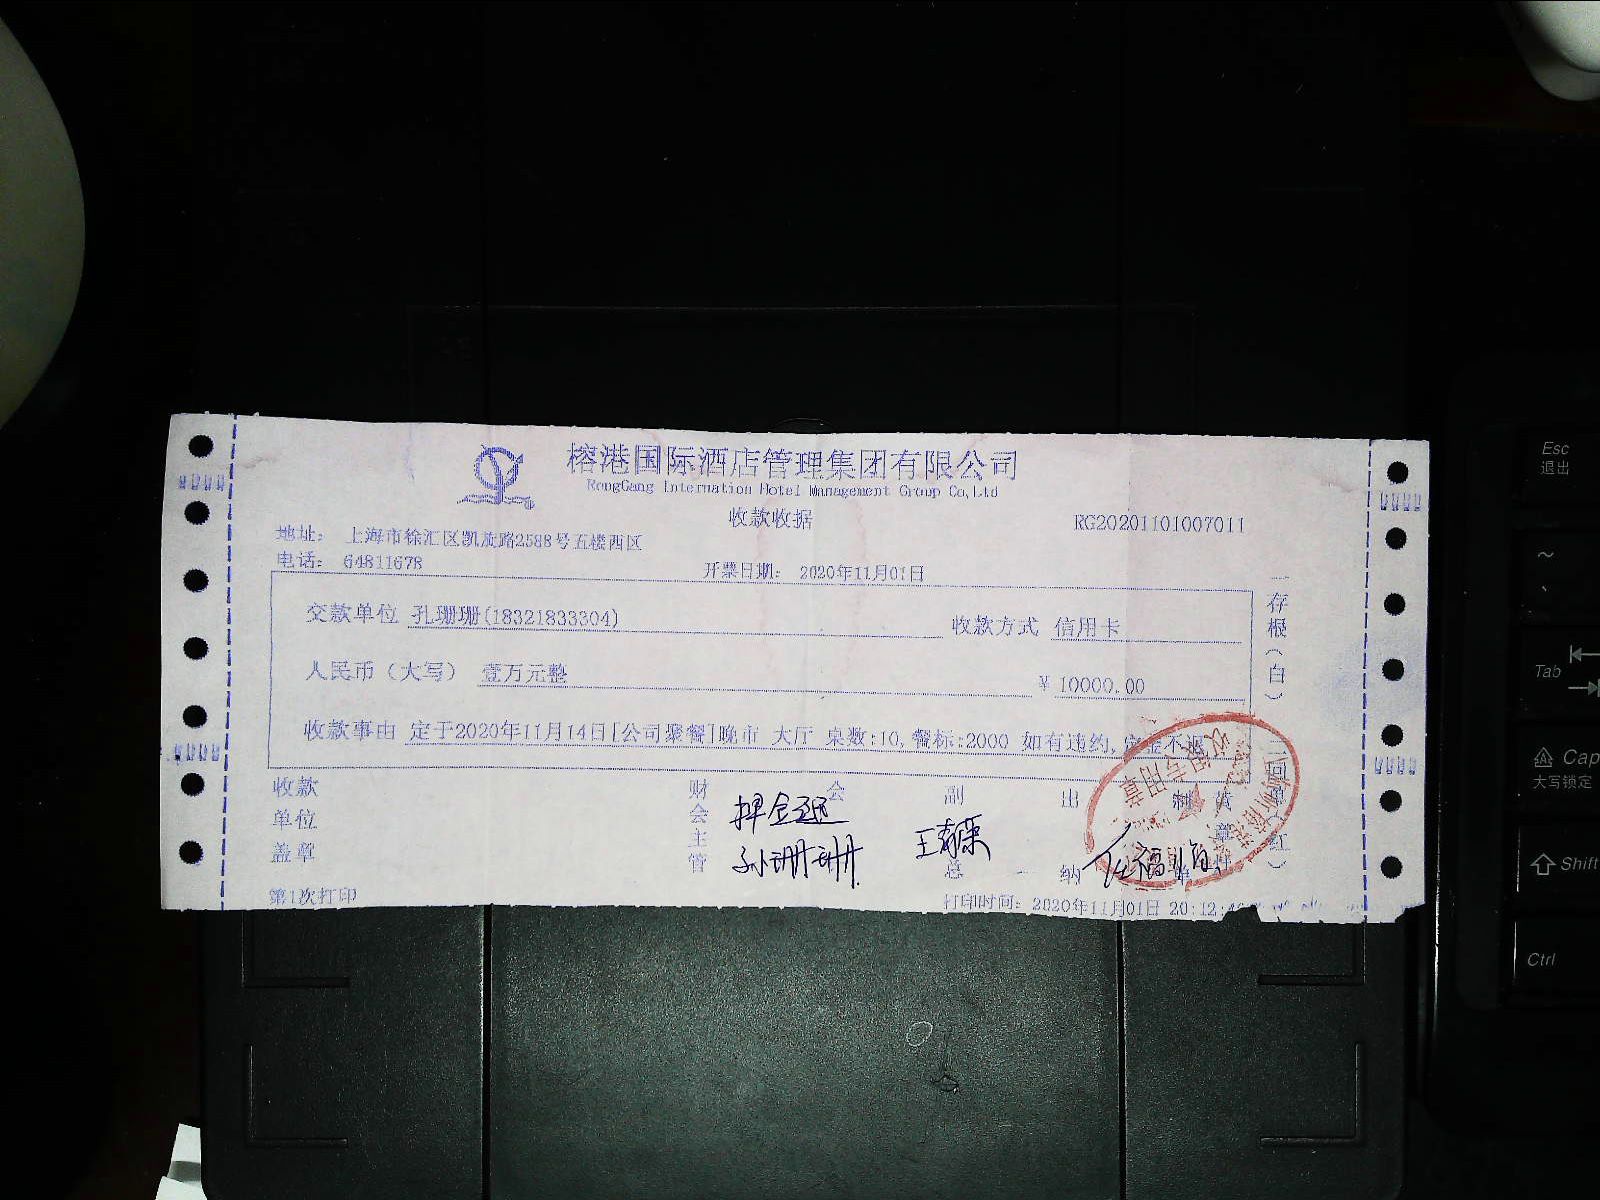 榕港国际酒店管理集团有限公司
RongGang Internation Hotel Management Group Co,Ltd
收款收据
RG20201101007011
地址： 上海市徐汇区凯旋路2588号五楼西区
电话： 64811678
开票日期： 2020年11月01日
交款单位 孔珊珊(18321833304) 收款方式 信用卡
人民币（大写） 壹万元整 ￥ 10000.00
收款事由 定于2020年11月14日[公司聚餐]晚市 大厅 桌数:10,餐标:2000 如有违约,定金不退
一存根（白）
收款单位盖章
财会主管
会
副总
出纳
专用章
第1次打印
打印时间：2020年11月01日 20:12:
Esc
退出
~
Tab
Cap
大写锁定
Shift
Ctrl